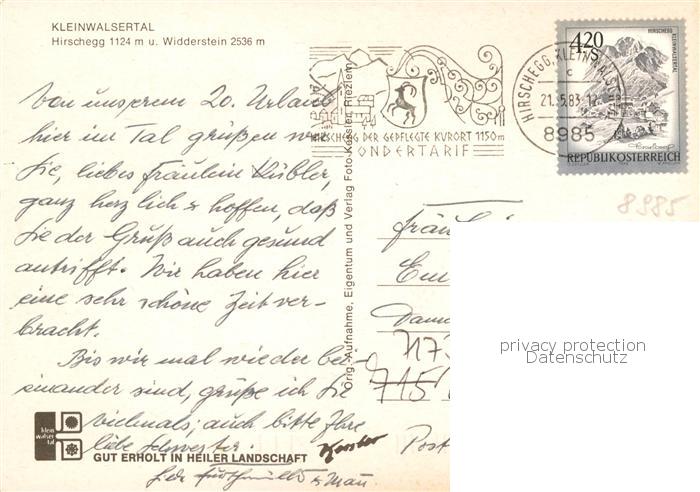 KLEINWALSERTAL
Hirschegg 1124 m u. Widderstein 2536 m
Von unserem 20. Urlaub
hier im Tal grüßen wir
Sie, liebes Fräulein Kübler,
ganz herzlich & hoffen, daß
Sie der Gruß auch gesund
antrifft. Wir haben hier
eine sehr schöne Zeit ver-
bracht.
Bis wir mal wieder bei-
einander sind, grüße ich Sie
vielmals; auch bitte Ihre
liebe Schwester.
klein
walser
tal
GUT ERHOLT IN HEILER LANDSCHAFT
Orig. Aufnahme, Eigentum und Verlag Foto-Kessler, Riezlern
HIRSCHEGG DER GEPFLEGTE KURORT 1150m
ONDERTARIF
HIRSCHEGG, KLEINWALSERTAL
c
21.5.83
8985
4.20
S
HIRSCHEGG
KLEINWALSERTAL
REPUBLIK ÖSTERREICH
8985
Fräul
Em
717
715
Post
privacy protection
Datenschutz